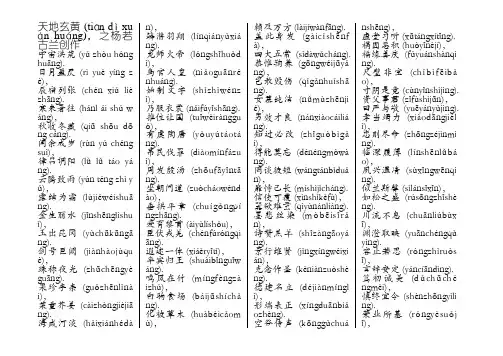 天地玄黄 (tiān dì xuán huáng)，之杨若古兰创作
宇宙洪荒 (yǔ zhòu hóng huāng).
日月盈昃 (rì yuè yíng zè),
辰宿列张 (chén xiù liè zhāng).
寒来暑往 (hán lái shǔ wǎng),
秋收冬藏 (qiū shōu dōng cáng).
闰余成岁 (rùn yú chéng suì),
律吕调阳 (lǜ lǚ táo yáng).
云腾致雨 (yún téng zhì yǔ),
露结为霜 (lùjiéwéishuāng).
金生丽水 (jīnshēnglìshuǐ),
玉出昆冈 (yùchūkūngāng).
剑号巨阙 (jiànhàojùquè),
珠称夜光 (zhūchēngyèguāng).
果珍李柰 (guǒzhēnlǐnài),
菜重芥姜 (càizhòngjièjiāng).
海咸河淡 (hǎixiánhédàn),
鳞潜羽翔 (línqiányǔxiáng).
龙师火帝 (lóngshīhuǒdì),
鸟官人皇 (niǎoguānrénhuáng).
始制文字 (shǐzhìwénzì),
乃服衣裳 (nǎifúyīshāng).
推位让国 (tuīwèiràngguó),
有虞陶唐 (yǒuyútáotáng).
吊民伐罪 (diàomínfázuì),
周发殷汤 (zhōufāyīntāng).
坐朝问道 (zuòcháowèndào),
垂拱平章 (chuígǒngpíngzhāng).
爱育黎首 (àiyùlíshǒu),
臣伏戎羌 (chénfúróngqiāng).
遐迩一体 (xiáěryītǐ),
率宾归王 (shuàibīnguīwáng).
鸣凤在竹 (míngfèngzàizhú),
白驹食场 (báijūshíchǎng).
化被草木 (huàbèicǎomù),
赖及万方 (làijíwànfāng).
盖此身发 (gàicǐshēnfà),
四大五常 (sìdàwǔcháng).
恭惟鞠养 (gōngwéijūyǎng),
岂敢毁伤 (qǐgǎnhuǐshāng).
女慕贞洁 (nǚmùzhēnjié),
男效才良 (nánxiàocáiliáng).
知过必改 (zhīguòbìgǎi),
得能莫忘 (dénéngmòwàng).
罔谈彼短 (wǎngtánbǐduǎn),
靡恃己长 (míshìjǐcháng).
信使可覆 (xìnshǐkěfù),
器欲难量 (qìyùnánliáng).
墨悲丝染 (mòbēisīrǎn),
诗赞羔羊 (shīzàngāoyáng).
景行维贤 (jǐngxíngwéixián),
克念作圣 (kèniànzuòshèng).
德建名立 (déjiànmínglì),
形端表正 (xíngduānbiǎozhèng).
空谷传声 (kōnggǔchuánshēng),
虚堂习听 (xūtángxítīng).
祸因恶积 (huòyīnèjī),
福缘善庆 (fúyuánshànqìng).
尺璧非宝 (chǐbìfēibǎo),
寸阴是竞 (cùnyīnshìjìng).
资父事君 (zīfùshìjūn),
曰严与敬 (yuēyányǔjìng).
孝当竭力 (xiàodāngjiélì),
忠则尽命 (zhōngzéjìnmìng).
临深履薄 (línshēnlǚbáo),
夙兴温凊 (sùxīngwēnqìng).
似兰斯馨 (sìlánsīxīn),
如松之盛 (rúsōngzhīshèng).
川流不息 (chuānliúbùxī),
渊澄取映 (yuānchéngqǔyìng).
容止若思 (róngzhǐruòsī),
言辞安定 (yáncíāndìng).
笃初诚美 (dǔchūchéngměi),
慎终宜令 (shènzhōngyílìng).
荣业所基 (róngyèsuǒjī),